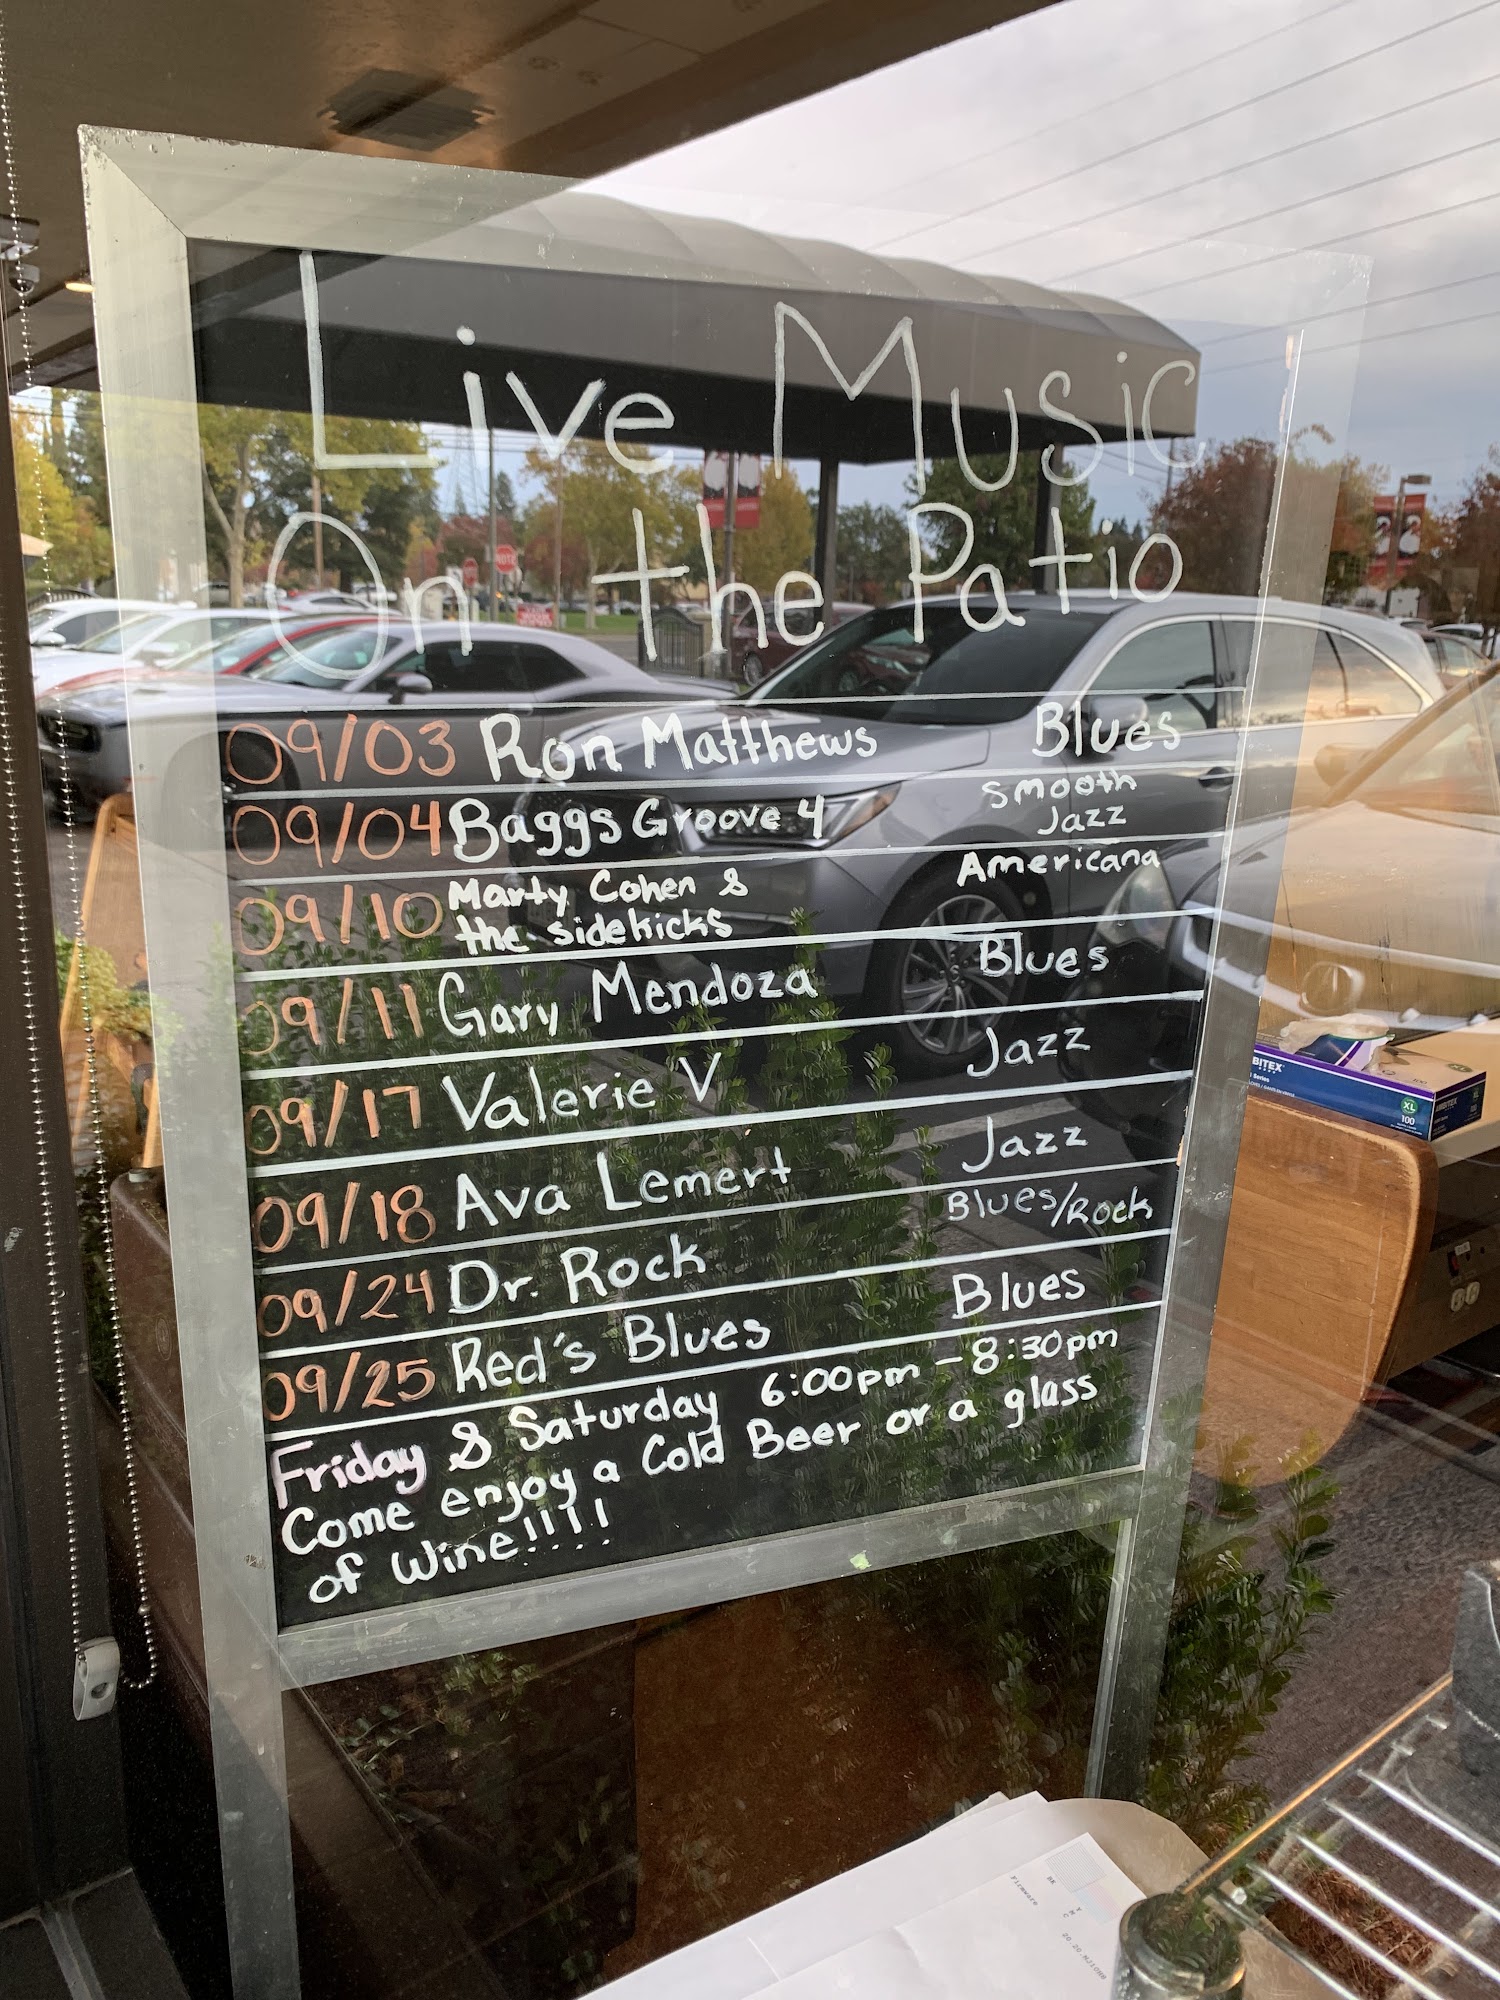 Live Music
On the Patio
09/03 Ron Matthews Blues
09/04 Baggs Groove 4 Smooth Jazz
09/10 Marty Cohen & the sidekicks Americana
09/11 Gary Mendoza Blues
09/17 Valerie V Jazz
09/18 Ava Lemert Jazz
09/24 Dr. Rock Blues/Rock
09/25 Red's Blues Blues
Friday & Saturday 6:00pm - 8:30pm
Come enjoy a Cold Beer or a glass
of Wine!!!!
BITEX
Series
XL
100